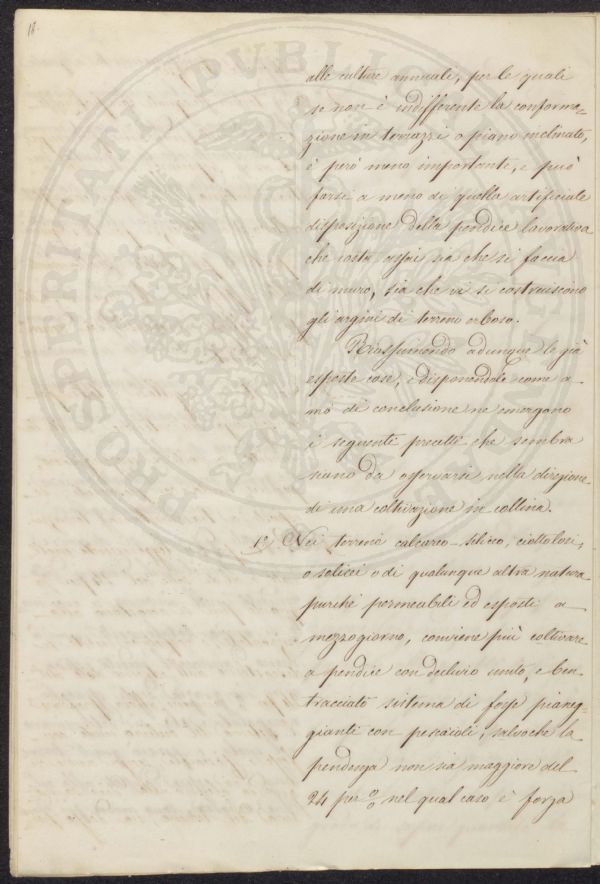 18.
alle culture annuali, per le quali
se non è indifferente la conforma-
zione in terrazzi o piano inclinato,
è però meno importante, e può
farsi a meno di quella artificiale
disposizione della pendice lavorativa
che costa assai sia che si faccia
di muro, sia che vi si costruiscono
gli argini di terreno erboso.
Riassumendo adunque le già
esposte cose, e disponendole come a
mo di conclusione ne emergono
i seguenti precetti che sembra
siano da osservarsi nella direzione
di una coltivazione in collina.
1º Nei terreni calcareo-silicei, ciottolosi,
o selicei o di qualunque altra natura
purché permeabili ed esposti a
mezzogiorno, conviene più coltivare
a pendice con declivio unito, e ben
tracciato sistema di fosse pianeg-
gianti con pescaioli, salvoche la
pendenza non sia maggiore del
24 per % nel qual caso è forza
PROSPERITATI PUBLICAE